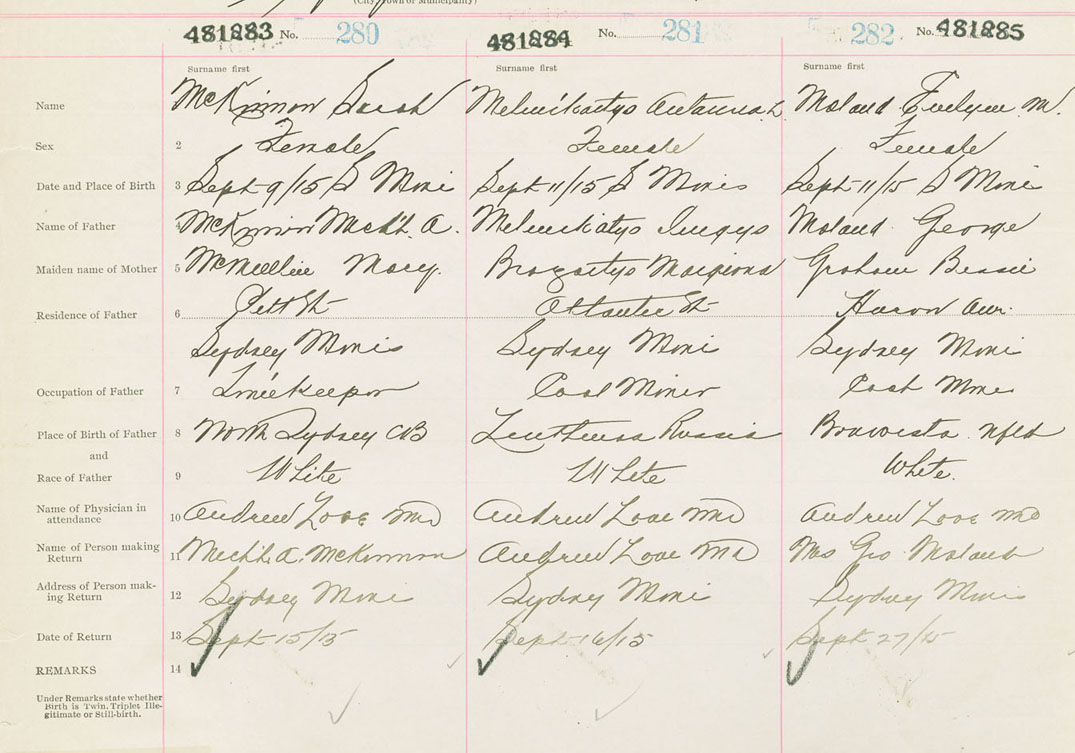 (City, Town or Municipality)
481283 No. 280 481284 No. 281 282 No. 481285
Surname first Surname first Surname first
Name McKinnon Sarah Melnikaitys Antanina Moland Evelyn M.
Sex 2 Female Female Female
Date and Place of Birth 3 Sept 9/15 S Mines Sept 11/15 S Mines Sept 11/15 S Mines
Name of Father 4 McKinnon Michl. A. Melnikaitys Moland George
Maiden name of Mother 5 Mary Graham Bessie
Residence of Father 6 Pitt St Atlantic St Huron Ave.
Sydney Mines Sydney Mines Sydney Mines
Occupation of Father 7 Timekeeper Coal Miner Coal Mine
Place of Birth of Father 8 North Sydney CB Russia Nfld
and
Race of Father 9 White White White.
Name of Physician in
attendance 10 Andrew Love MD Andrew Love MD Andrew Love MD
Name of Person making
Return 11 Michl. A. McKinnon Andrew Love MD Mrs Geo Moland
Address of Person mak-
ing Return 12 Sydney Mines Sydney Mines Sydney Mines
Date of Return 13 Sept 15/15 Sept 16/15 Sept 27/15
REMARKS 14
Under Remarks state whether
Birth is Twin, Triplet Ille-
gitimate or Still-birth.